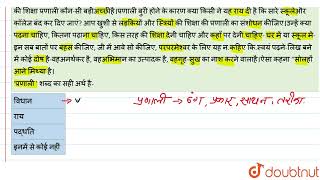 की शिक्षा प्रणाली कौन-सी बड़ी अच्छी है।प्रणाली बुरी होने के कारण क्या किसी ने यह राय दी है कि सारे स्कूल और
कॉलेज बंद कर दिए जाएं? आप खुशी से लड़कियों और स्त्रियों की शिक्षा की प्रणाली का संशोधन कीजिए।उन्हें क्या
पढ़ाना चाहिए, कितना पढ़ाना चाहिए, किस तरह की शिक्षा देनी चाहिए और कहाँ पर देनी चाहिए- घर में या स्कूल में-
इन सब बातों पर बहस कीजिए, जी में आवे सो कीजिए, पर परमेश्वर के लिए यह न कहिए कि स्वयं पढ़ने-लिखने
में कोई दोष है-वह अनर्थकर है, वह अभिमान का उत्पादक है, वह गृह-सुख का नाश करने वाला है।ऐसा कहना "सोलहों
आने मिथ्या है।
'प्रणाली' शब्द का सही अर्थ है-
विधान → v प्रणाली → ढंग, प्रकार, साधन, तरीका
राय
पद्धति
इनमें से कोई नहीं
doubtnut